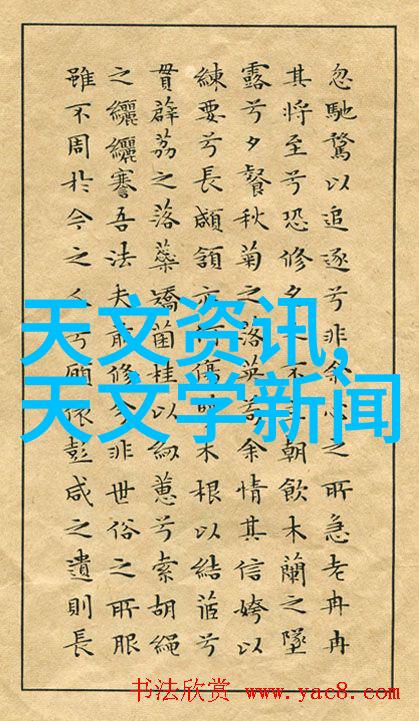 忽馳騖以追逐兮非余心之所急老冉冉
其將至兮恐修不朝飲木蘭之墜
露兮夕餐秋菊之落英苟余情其信姱以
練要兮長顑頷亦何傷木根以結茝兮
貫薜荔之落蘂矯菌桂以紉蕙兮索胡繩
之纚纚謇吾法夫前修兮非世俗之所服
雖不周於今之人兮願依彭咸之遺則長
天文资讯,
天文学新闻
书法欣赏 www.yac8.com